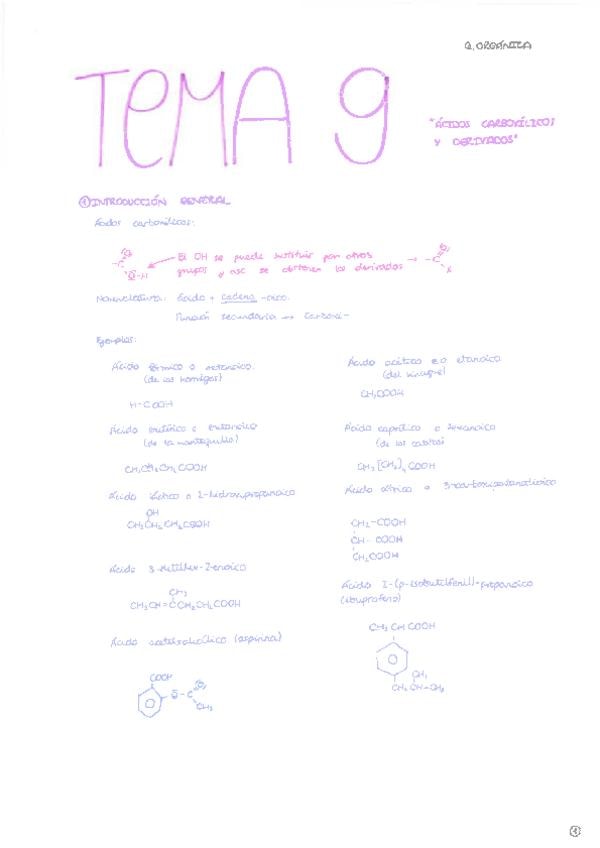 Q. ORGÁNICA
TEMA 9
"ÁCIDOS CARBOXÍLICOS
Y DERIVADOS"
① INTRODUCCIÓN GENERAL
Ácidos carboxílicos:
El OH se puede sustituir por otros
grupos y así se obtienen los derivados
Nomenclatura: Ácido + cadena -oico.
Función secundaria → Carboxi-
Ejemplos:
Ácido fórmico o metanoico
(de las hormigas)
H-COOH
Ácido acético o etanoico
(del vinagre)
CH₃COOH
Ácido butírico o butanoico
(de la mantequilla)
CH₃CH₂CH₂COOH
Ácido caprílico o hexanoico
(de las cabras)
CH₃[CH₂]₄COOH
Ácido láctico o 2-hidroxipropanoico
OH
CH₃CH₂CH₂COOH
Ácido cítrico o
CH₂-COOH
CH-COOH
CH₂COOH
Ácido
CH₃
CH₃CH=CCH₂CH₂COOH
Ácido 2-(p-isobutilfenil)-propanoico
(ibuprofeno)
CH₃ CH COOH
CH₃
CH₂ CH-CH₃
Ácido acetilsalicílico (aspirina)
COOH
O-C
O
CH₃
①